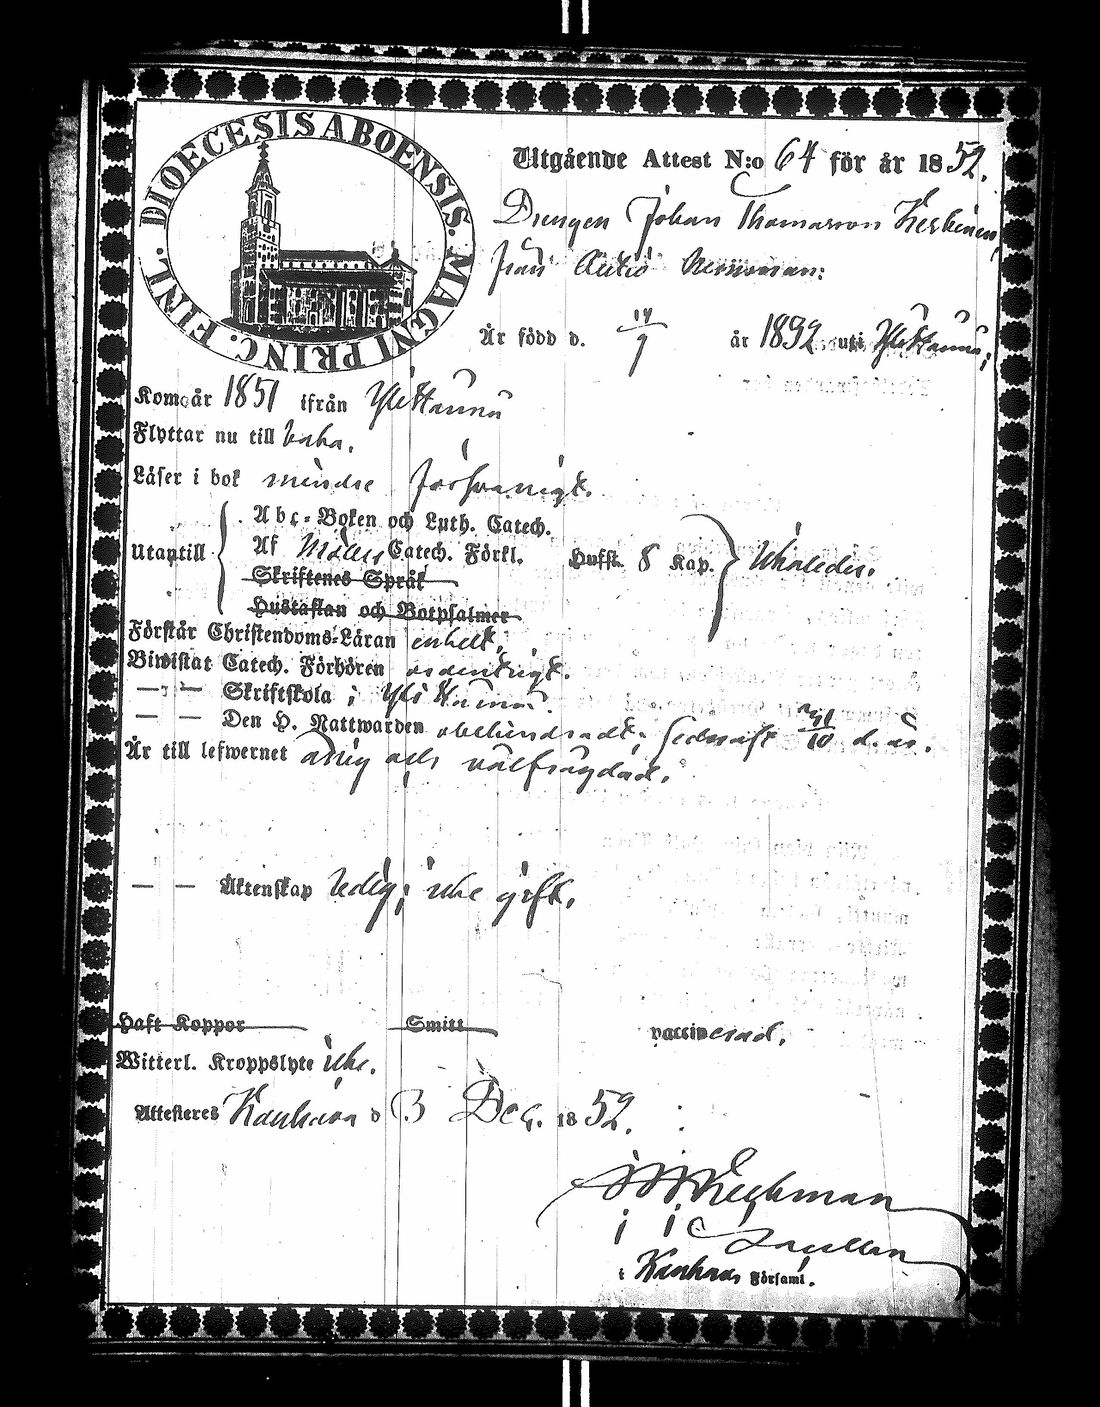 DIOECESIS ABOENSIS. MAGNI PRINC. FINL.
Utgående Attest N:o 64 för år 1852.
Drengen Johan Thomasson Keskinen,
från Autio
Är född d. 17/7 år 1832 uti Ylistaro;
Kom år 1851 ifrån Ylistaro
Flyttar nu till baka.
Läser i bok mindre försvarligt.
Abc-Boken och Luth. Catech.
Utantill Af Catech. Förkl. Hufst. 8 Kap.
Skriftenes Språk
Hustaflan och Botpsalmer
Förstår Christendoms-Läran enkelt,
Biwistat Catech. Förhören ordentligt.
— — Skriftskola i Ylistaro.
— — Den H. Nattwarden obehindradt, sednast 10 d. år.
Är till lefwernet ärlig och välfrägdad.
— — Äktenskap ledig; icke gift.
Haft Koppor Smitt vaccinerad.
Witterl. Kroppslyte icke.
Attesteres Kauhava d 3 Dec. 1852.
i Kauhava Församl.